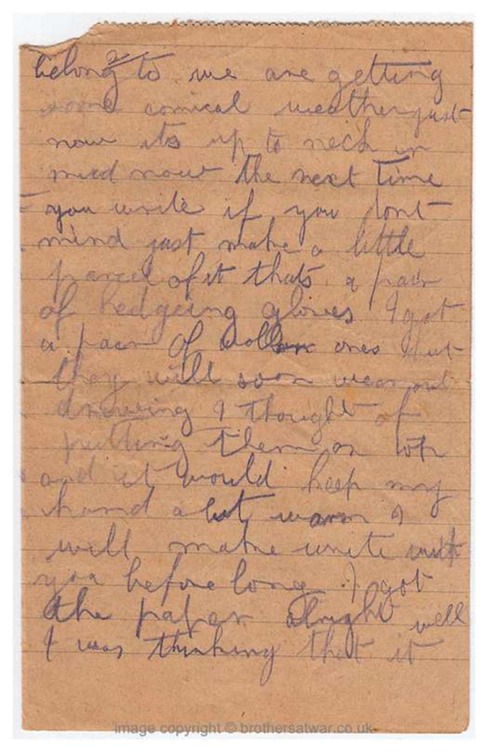 belong to we are getting
some comical weather just
now its up to neck in
mud now the next time
you write if you dont
mind just make a little
parcel of it thats a pair
of hedgeing gloves I got
a pair of wollen ones but
they will soon wear out
driveing I thought of
putting them on top
and it would keep my
hand a bit warm I
will make
you before long I got
the paper alright well
I was thinking that it
image copyright © brothersatwar.co.uk